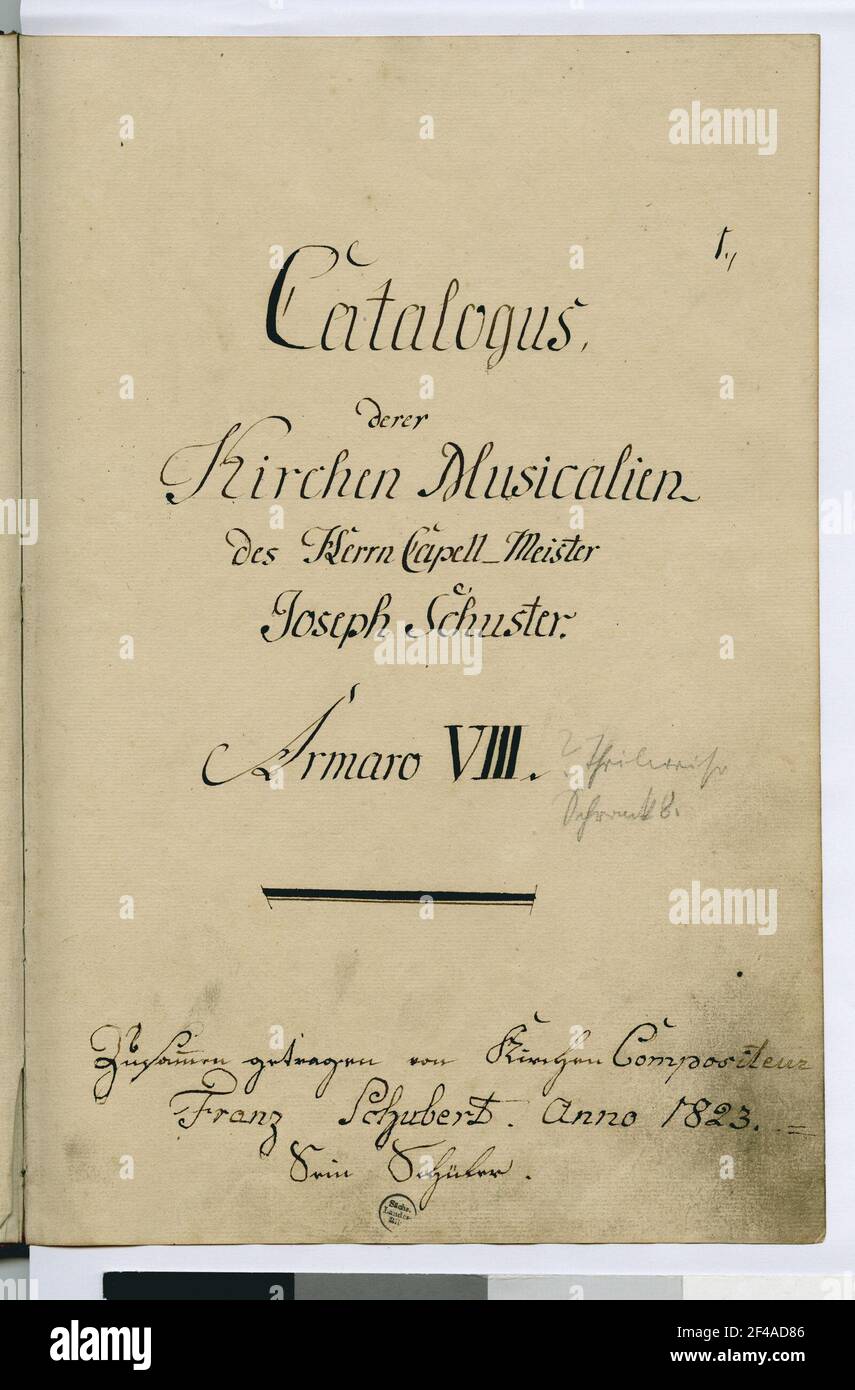 1.,,
Catalogus,
derer
Kirchen Musicalien
des Herrn Capell-Meister
Joseph Schuster.
Armaro VIII.
? Theilweise
Schrank 8.
Zusam̅en getragen von Kirchen Compositeur
Franz Schubert. Anno 1823. =
Sein Schüler.
Sächs.
Landes-
Bibl.
a alamy
alamy
Image ID: 2F4AD86
www.alamy.com